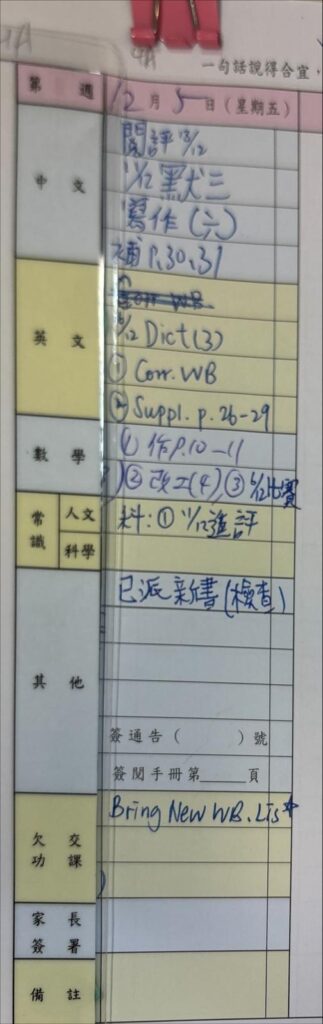 4A
一句話說得合宜，
第 週 12月5日(星期五)
中文 閱評 15/12
11/12 默三
寫作(六)
補 P.30,31
英文
Dict(3)
① Corr. WB
② Suppl. p. 26-29
數學 ① 作P.10-11
② 改工(4), ③ 6/12比賽
常識 人文 科: ① 11/12進評
科學
其他 已派新書(檢查)
簽通告( )號
簽閱手冊第 頁
欠交功課 Bring New WB. List
家長簽署
備註